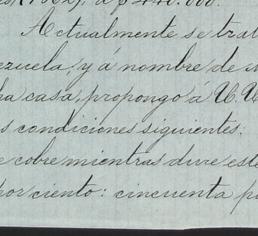 á $440.000.
Actualmente se trat
zuela, y á nombre de
casa, propongo á U.U
condiciones siguientes:
cobre mientras dure este
por ciento: cincuenta p